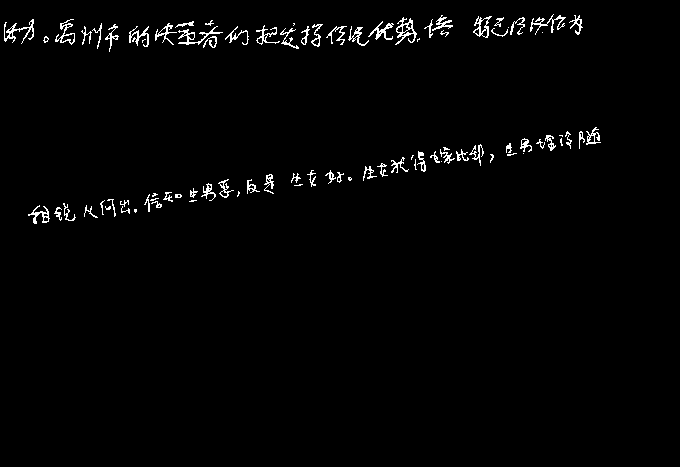 活力。禹州市的决策者们把发挥传统优势、培 特色经济作为
租税从何出。信知生男恶,反是生女好。生女犹得嫁比邻,生男埋没随